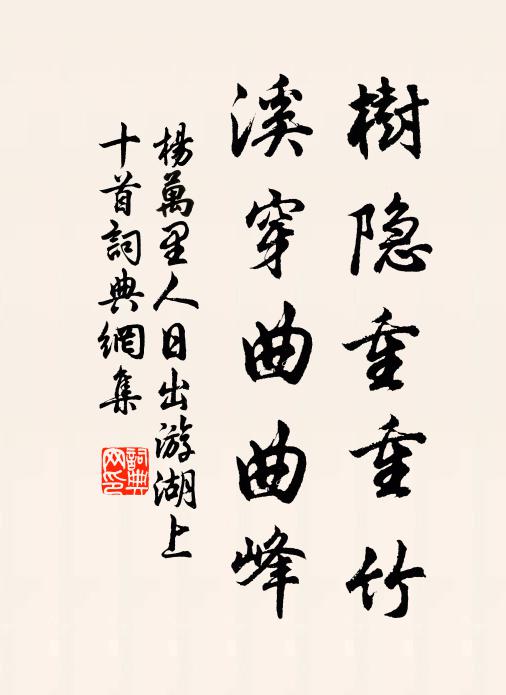 樹隐重重竹
溪穿曲曲峰
楊萬里人日出游湖上
十首詞典網集
詞典网印